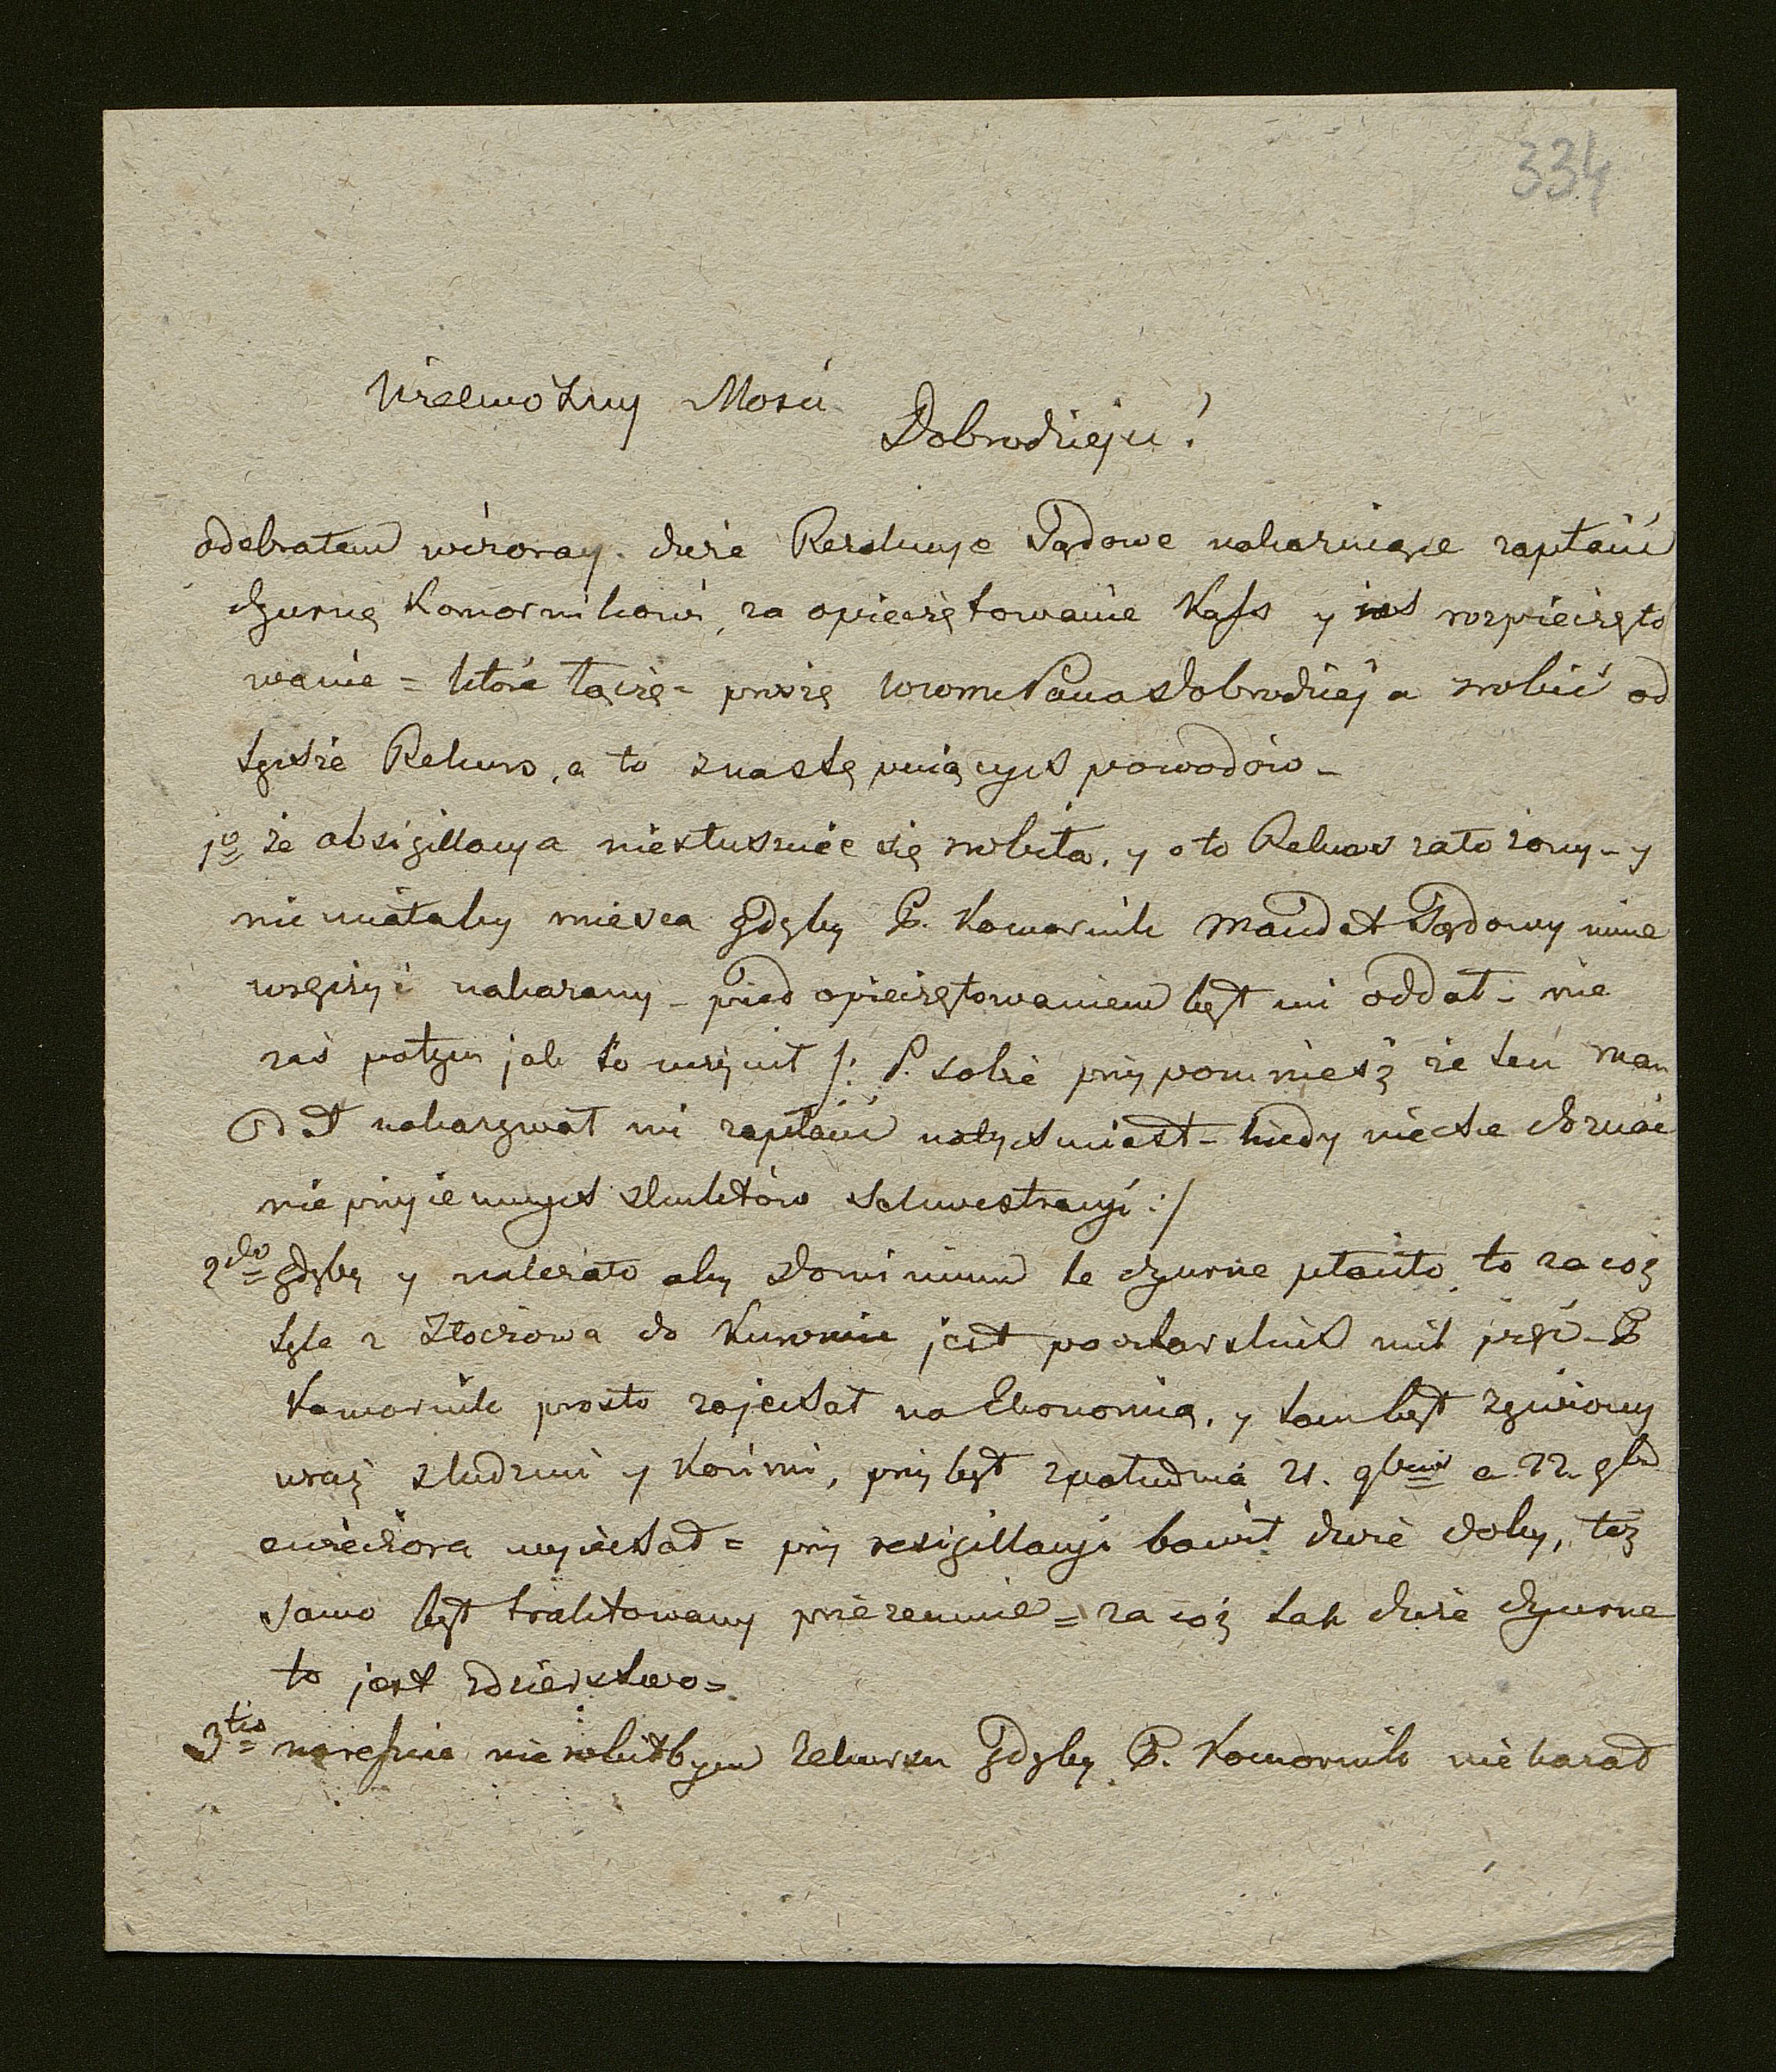 334
Wielmożny Mości
Dobrodzieju!
odebrałem wczoray dwie Rezolucye Sądowe nakazuiące zapłacić
dyurnę Komornikowi, za opieczętowanie Kass y ich rozpieczęto
wanie = które łączę = proszę WWM Pana Dobrodzieja zrobić od
tychże Rekurs, a to z następuiących powodów –
1o że obsigillacya niesłusznie się zrobiła, y o to Rekurs założony – y
nie miałaby mieysca gdyby P. Komornik Mandat Sądowy mnie
wręczyć nakazany – pred opieczętowaniem był mi oddał – nie
zaś potym jak to uczynił /: P. sobie przypomniesz że ten Man
dat nakazywał mi zapłacić natychmiast – kiedy niechce doznać
nieprzyiemnych skutków Sekwestracyi :/
2do gdyby y należało aby Dominium te dyurne płaciło, to za cóż
tyle z Złoczowa do Kurowic jest pocztarskich mil pięć – P
Komornik prosto zajechał na Ekonomią, y tam był żywiony
wraz z ludzmi y końmi, przybył z południa 21. 9bris a 22. 9br
wieczora wyiechał = przy resigillacyi bawił dwie doby, toż
samo był traktowany przezemnie = za cóż tak duże dyurne
to jest zdzierstwo =
3tio nareszcie nie robiłbym rekursu gdyby P. Komornik nie kazał